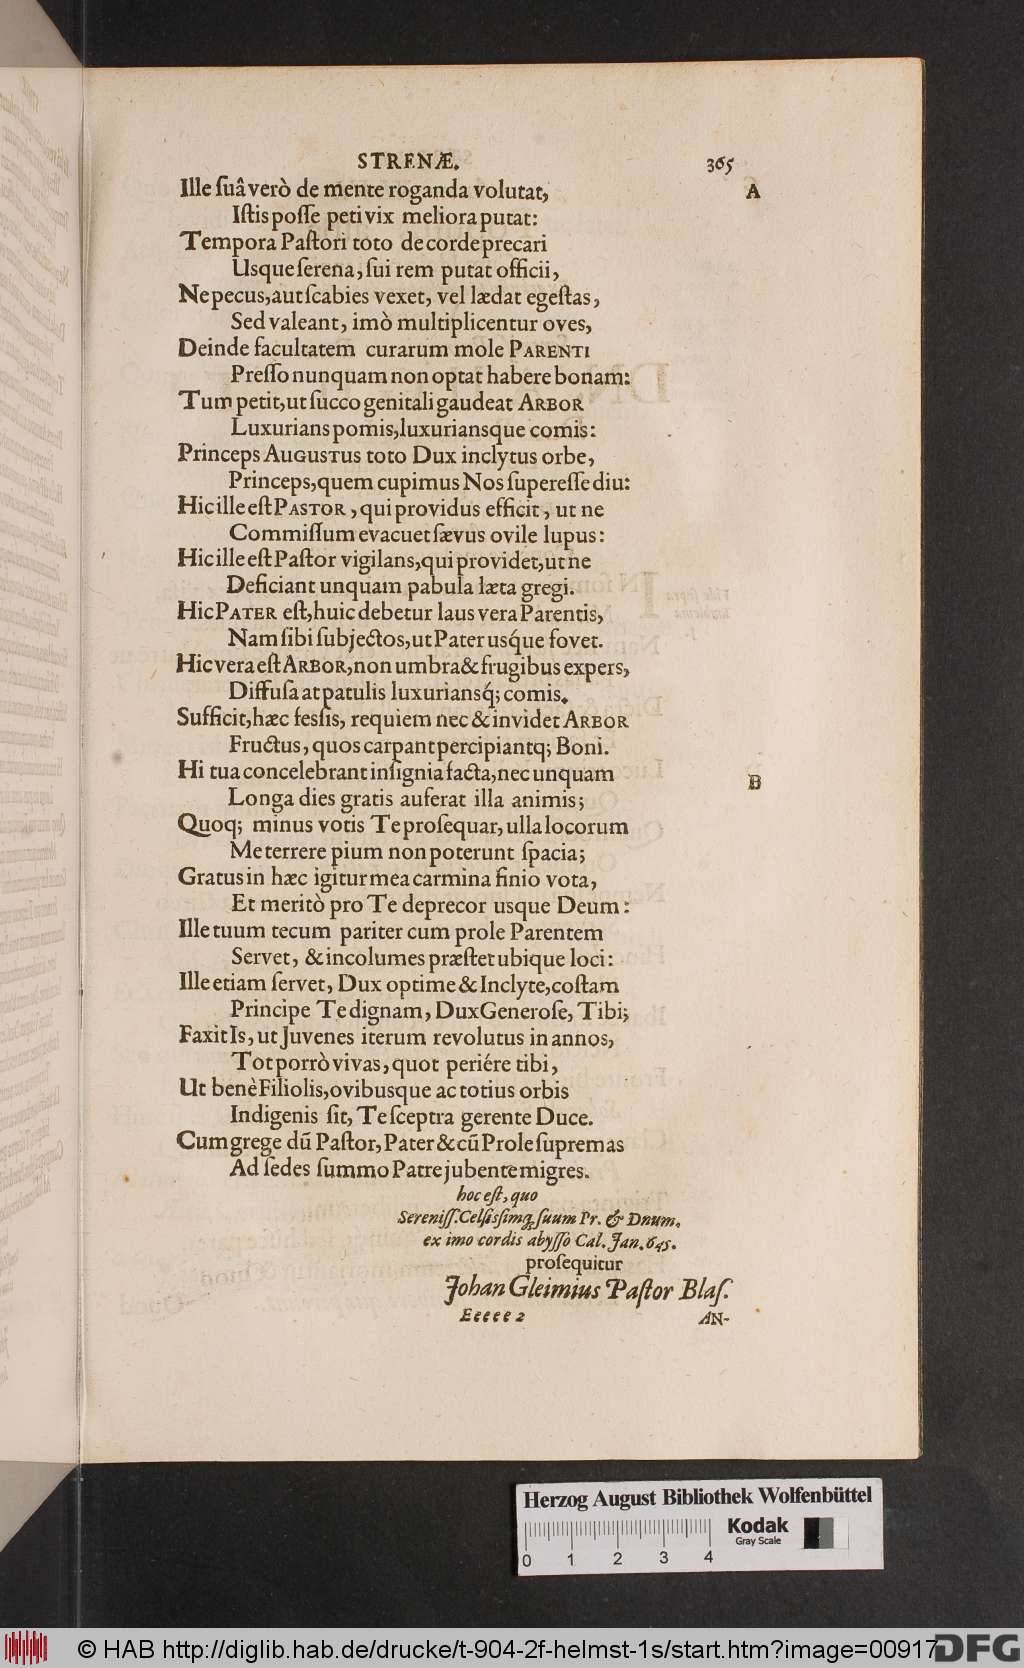 STRENÆ. 365
Ille ſuâ verò de mente roganda volutat, A
Iſtis poſſe peti vix meliora putat:
Tempora Paſtori toto de corde precari
Uſque ſerena, ſui rem putat officii,
Ne pecus, aut ſcabies vexet, vel lædat egeſtas,
Sed valeant, imò multiplicentur oves,
Deinde facultatem curarum mole PARENTI
Preſſo nunquam non optat habere bonam:
Tum petit, ut ſucco genitali gaudeat ARBOR
Luxurians pomis, luxuriansque comis:
Princeps AUGUSTUS toto Dux inclytus orbe,
Princeps, quem cupimus Nos ſupereſſe diu:
Hic ille eſt PASTOR, qui providus efficit, ut ne
Commiſſum evacuet ſævus ovile lupus:
Hic ille eſt Paſtor vigilans, qui providet, ut ne
Deficiant unquam pabula læta gregi.
Hic PATER eſt, huic debetur laus vera Parentis,
Nam ſibi ſubjectos, ut Pater usq́ue fovet.
Hic vera eſt ARBOR, non umbra & frugibus expers,
Diffuſa at patulis luxuriansq́; comis.
Sufficit, hæc feſſis, requiem nec & invidet ARBOR
Fructus, quos carpant percipiantq; Boni.
Hi tua concelebrant inſignia facta, nec unquam B
Longa dies gratis auferat illa animis;
Quoq; minus votis Te proſequar, ulla locorum
Me terrere pium non poterunt ſpacia;
Gratus in hæc igitur mea carmina finio vota,
Et meritò pro Te deprecor usque Deum:
Ille tuum tecum pariter cum prole Parentem
Servet, & incolumes præſtet ubique loci:
Ille etiam ſervet, Dux optime & Inclyte, coſtam
Principe Te dignam, Dux Generoſe, Tibi;
Faxit Is, ut Juvenes iterum revolutus in annos,
Tot porrò vivas, quot periére tibi,
Ut benè Filiolis, ovibusque ac totius orbis
Indigenis ſit, Te ſceptra gerente Duce.
Cum grege dũ Paſtor, Pater & cũ Prole ſupremas
Ad ſedes ſummo Patre jubente migres.
hoc eſt, quo
Sereniſſ. Celſisſimq́ ſuum Pr. & Dnum.
ex imo cordis abyſſo Cal. Jan. 645.
proſequitur
Johan Gleimius Paſtor Blaſ.
Eeeee 2 AN-
Herzog August Bibliothek Wolfenbüttel
Kodak
Gray Scale
0 1 2 3 4
© HAB http://diglib.hab.de/drucke/t-904-2f-helmst-1s/start.htm?image=00917 DFG